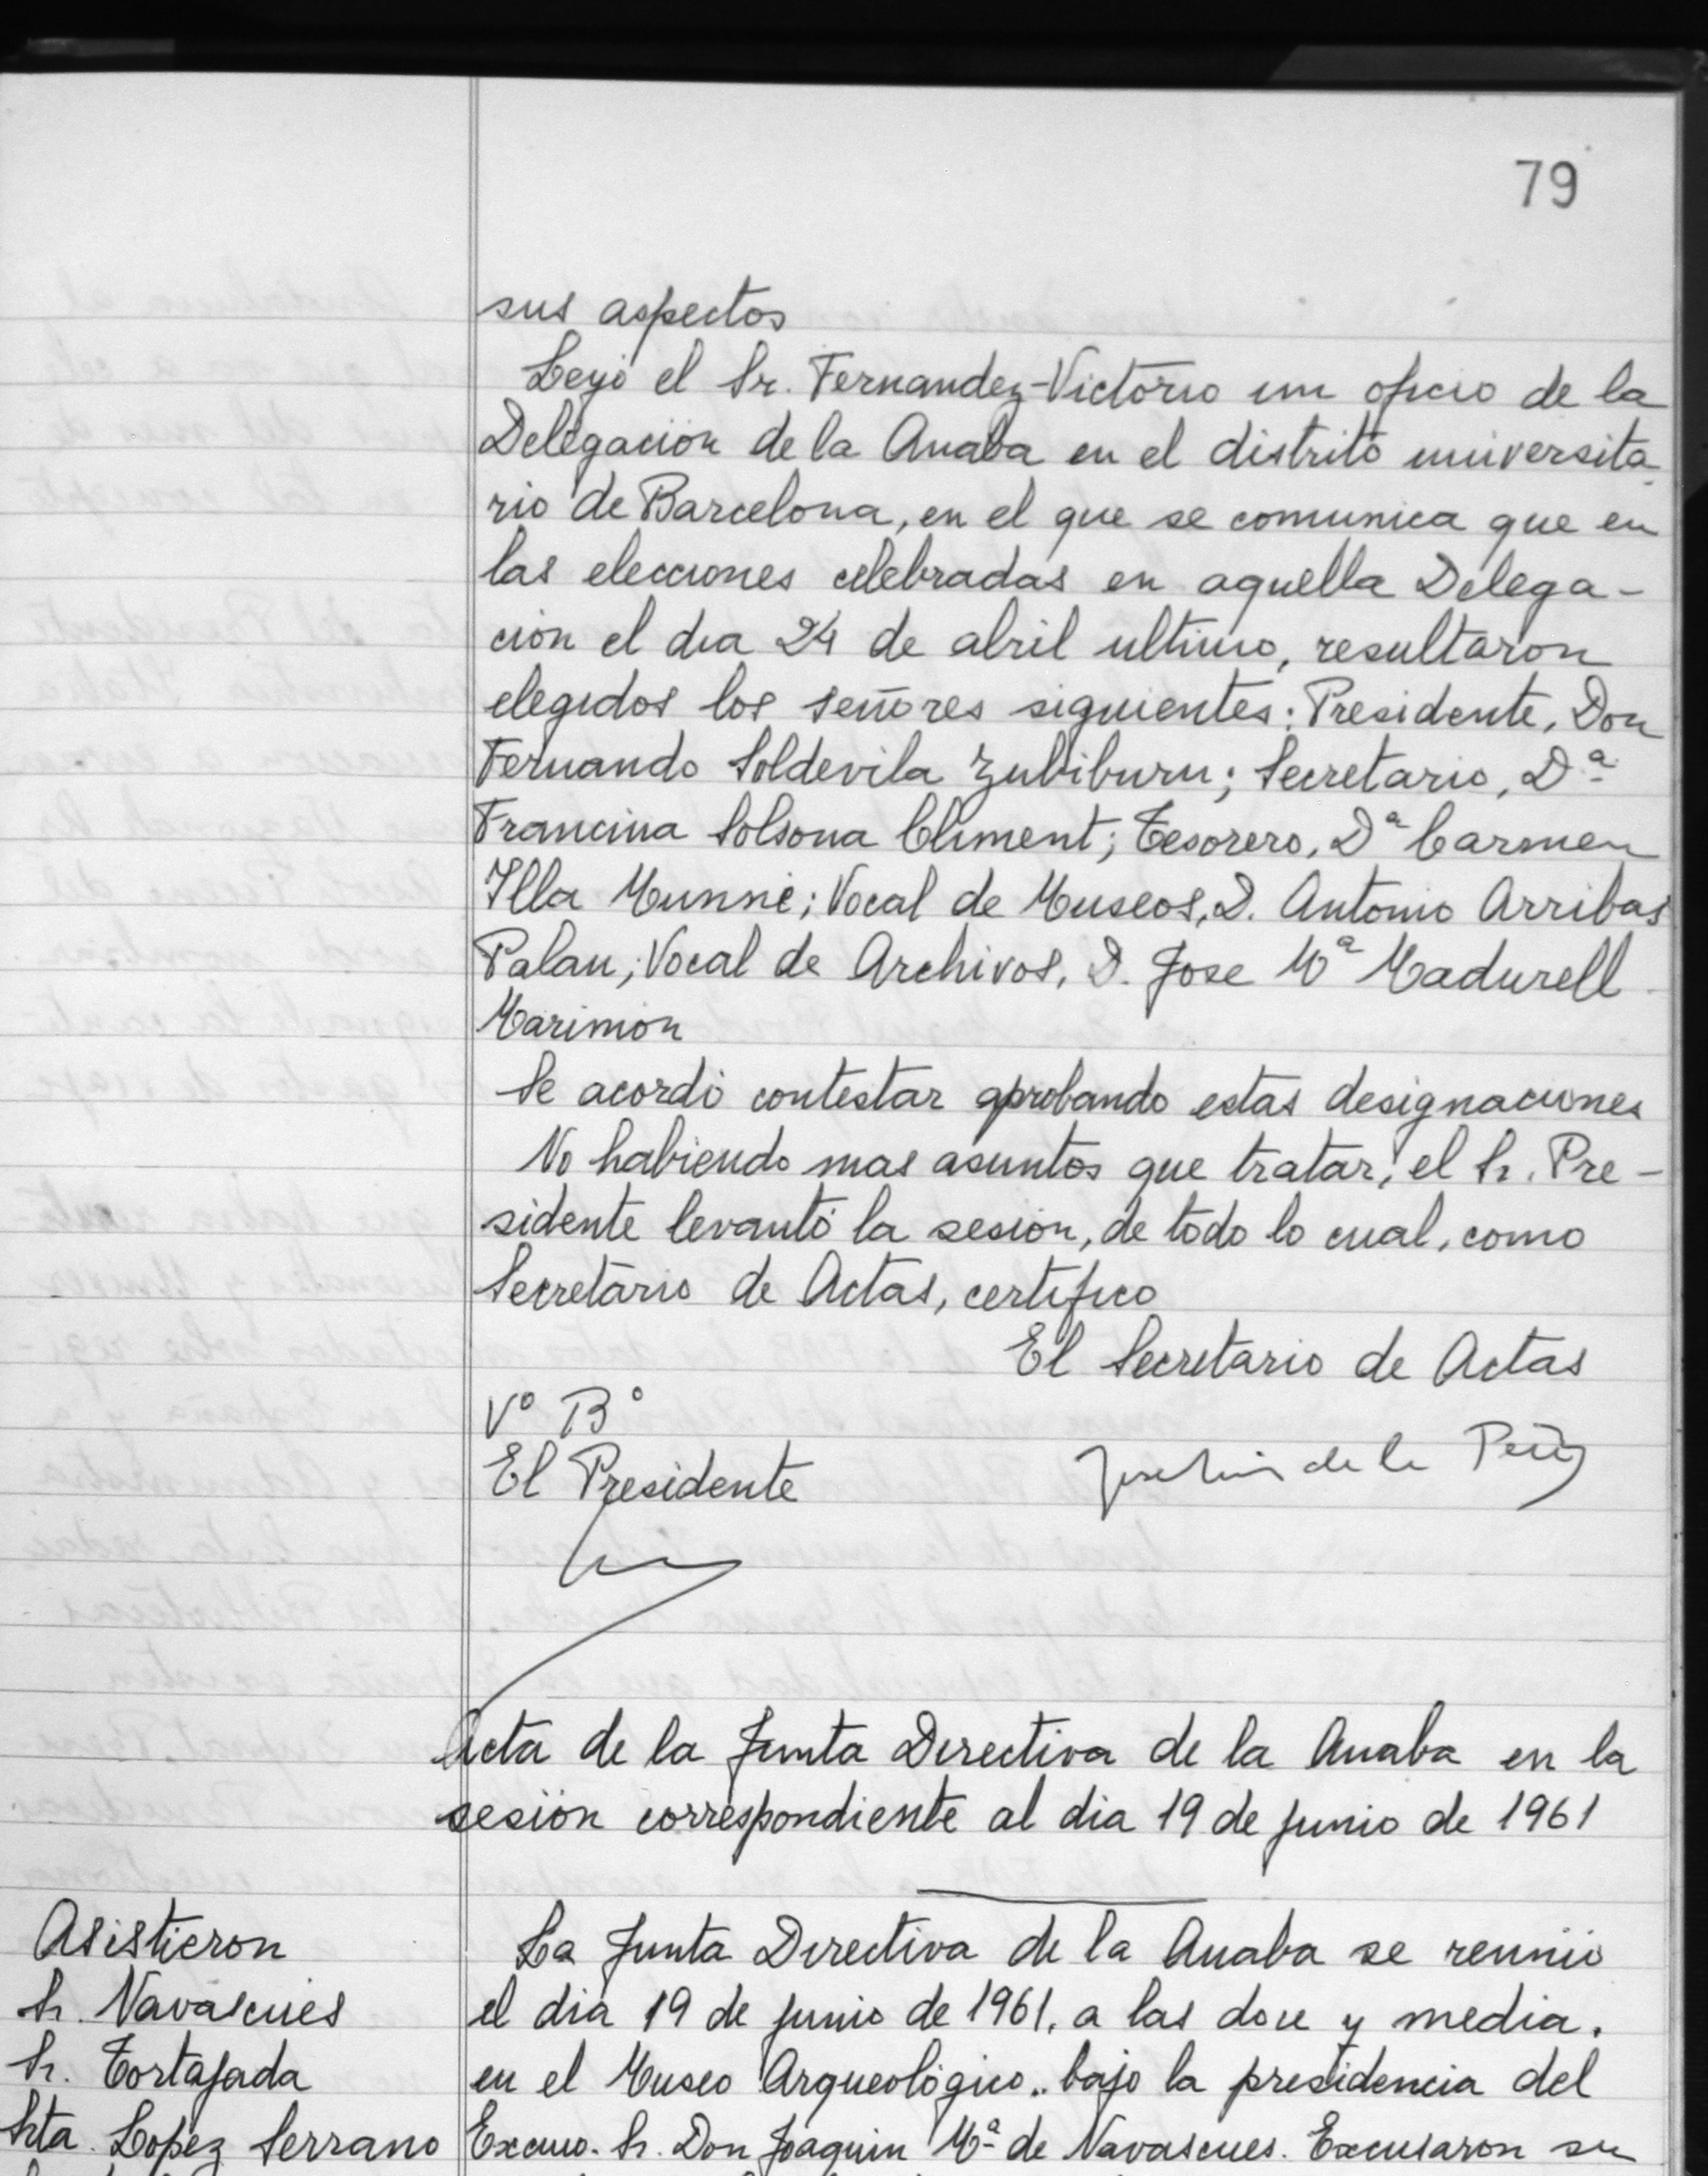 79
sus aspectos
Leyó el Sr. Fernandez-Victorio un oficio de la
Delegación de la Anaba en el distrito universita-
rio de Barcelona, en el que se comunica que en
las elecciones celebradas en aquella Delega-
ción el dia 24 de abril ultimo, resultaron
elegidos los señores siguientes: Presidente, Don
Fernando Soldevila Zubiburu; Secretario, Dª
Francina Solsona Climent; Tesorero, Dª Carmen
Illa Munné; Vocal de Museos, D. Antonio Arribas
Palau; Vocal de Archivos, D. Jose Mª Madurell
Marimón
Se acordó contestar aprobando estas designaciones
No habiendo mas asuntos que tratar, el Sr. Pre-
sidente levantó la sesión, de todo lo cual, como
Secretario de Actas, certifico
El Secretario de Actas
Vº Bº
El Presidente
Jose Luis de la Peña
Acta de la Junta Directiva de la Anaba en la
sesión correspondiente al dia 19 de junio de 1961
Asistieron
Sr. Navascués
Sr. Tortajada
Srta. Lopez Serrano
La Junta Directiva de la Anaba se reunió
el dia 19 de junio de 1961, a las doce y media,
en el Museo Arqueológico, bajo la presidencia del
Excmo. Sr. Don Joaquin Mª de Navascues. Excusaron su